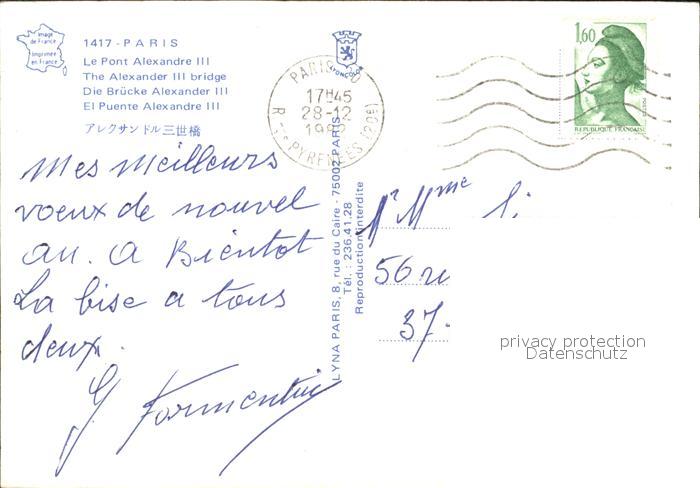 Image
de France
Imprimée
en France
1417 - PARIS
Le Pont Alexandre III
The Alexander III bridge
Die Brücke Alexander III
El Puente Alexandre III
アレクサンドル三世橋
Mes meilleurs
voeux de nouvel
an. A Bientot
La bise a tous
deux.
LYNA PARIS, 8, rue du Caire - 75002 PARIS
Tél.: 236.41.28
Reproduction interdite
PARIS
17H45
28-12
R. PYRENEES (20E)
1,60
REPUBLIQUE FRANÇAISE
Mr Mme
56 ru
37.
privacy protection
Datenschutz